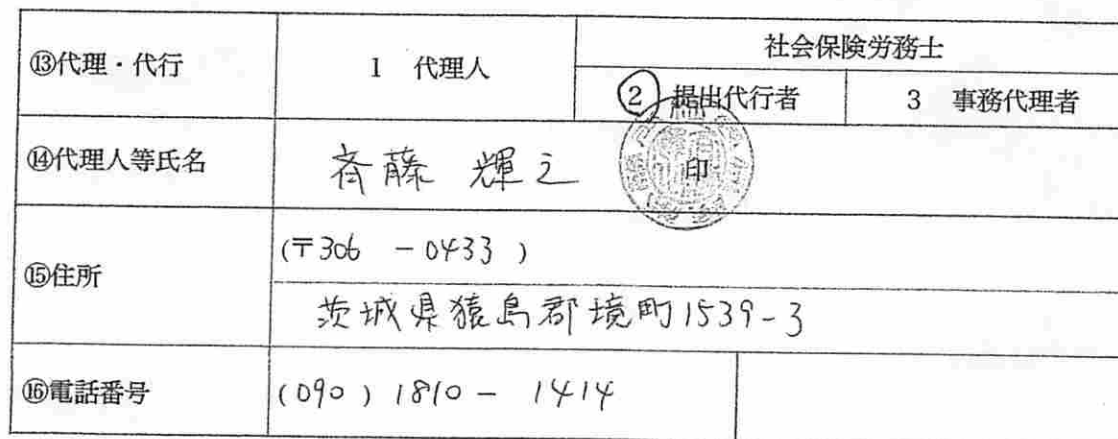 ⑬代理・代行 1 代理人 社会保険労務士
② 提出代行者 3 事務代理者
⑭代理人等氏名 斉藤 輝之 印
(〒306 -0433 )
⑮住所
茨城県猿島郡境町1539-3
⑯電話番号 (090) 1810- 1414